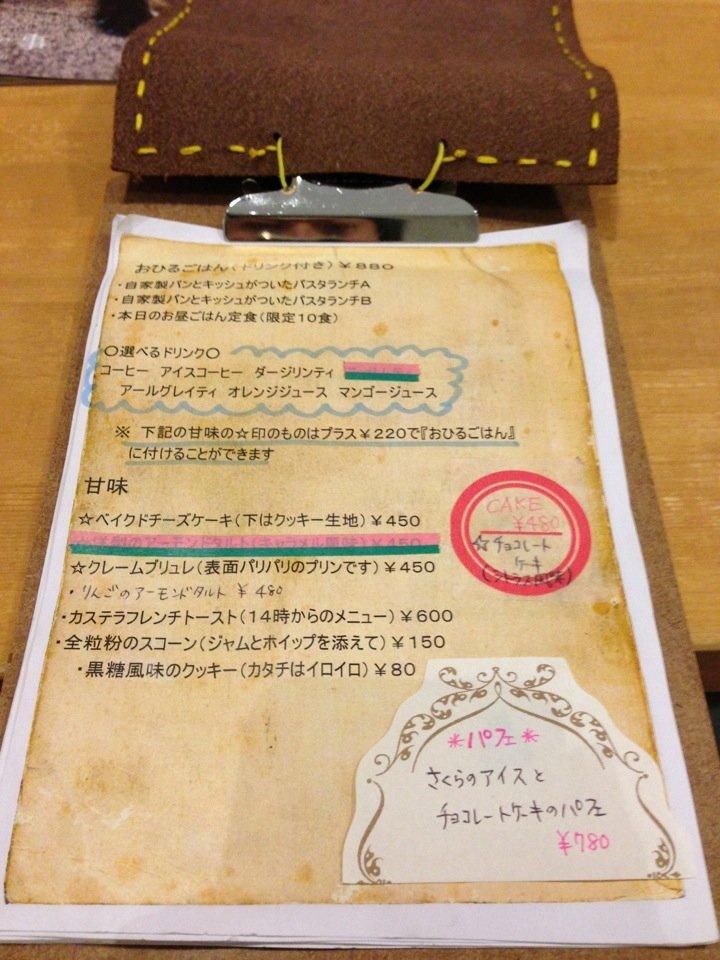 おひるごはん(ドリンク付き)￥880
・自家製パンとキッシュがついたパスタランチA
・自家製パンとキッシュがついたパスタランチB
・本日のお昼ごはん定食(限定10食)
〇選べるドリンク〇
コーヒー アイスコーヒー ダージリンティ
アールグレイティ オレンジジュース マンゴージュース
※ 下記の甘味の☆印のものはプラス￥220で『おひるごはん』
に付けることができます
甘味
☆ベイクドチーズケーキ(下はクッキー生地)￥450
のアーモンドタルト(キャラメル風味)￥450
☆クレームブリュレ(表面パリパリのプリンです)￥450
・りんごのアーモンドタルト ￥480
・カステラフレンチトースト(14時からのメニュー)￥600
・全粒粉のスコーン(ジャムとホイップを添えて)￥150
・黒糖風味のクッキー(カタチはイロイロ)￥80
CAKE
￥480
☆チョコレート
ケーキ
*パフェ*
さくらのアイスと
チョコレートケーキのパフェ
￥780